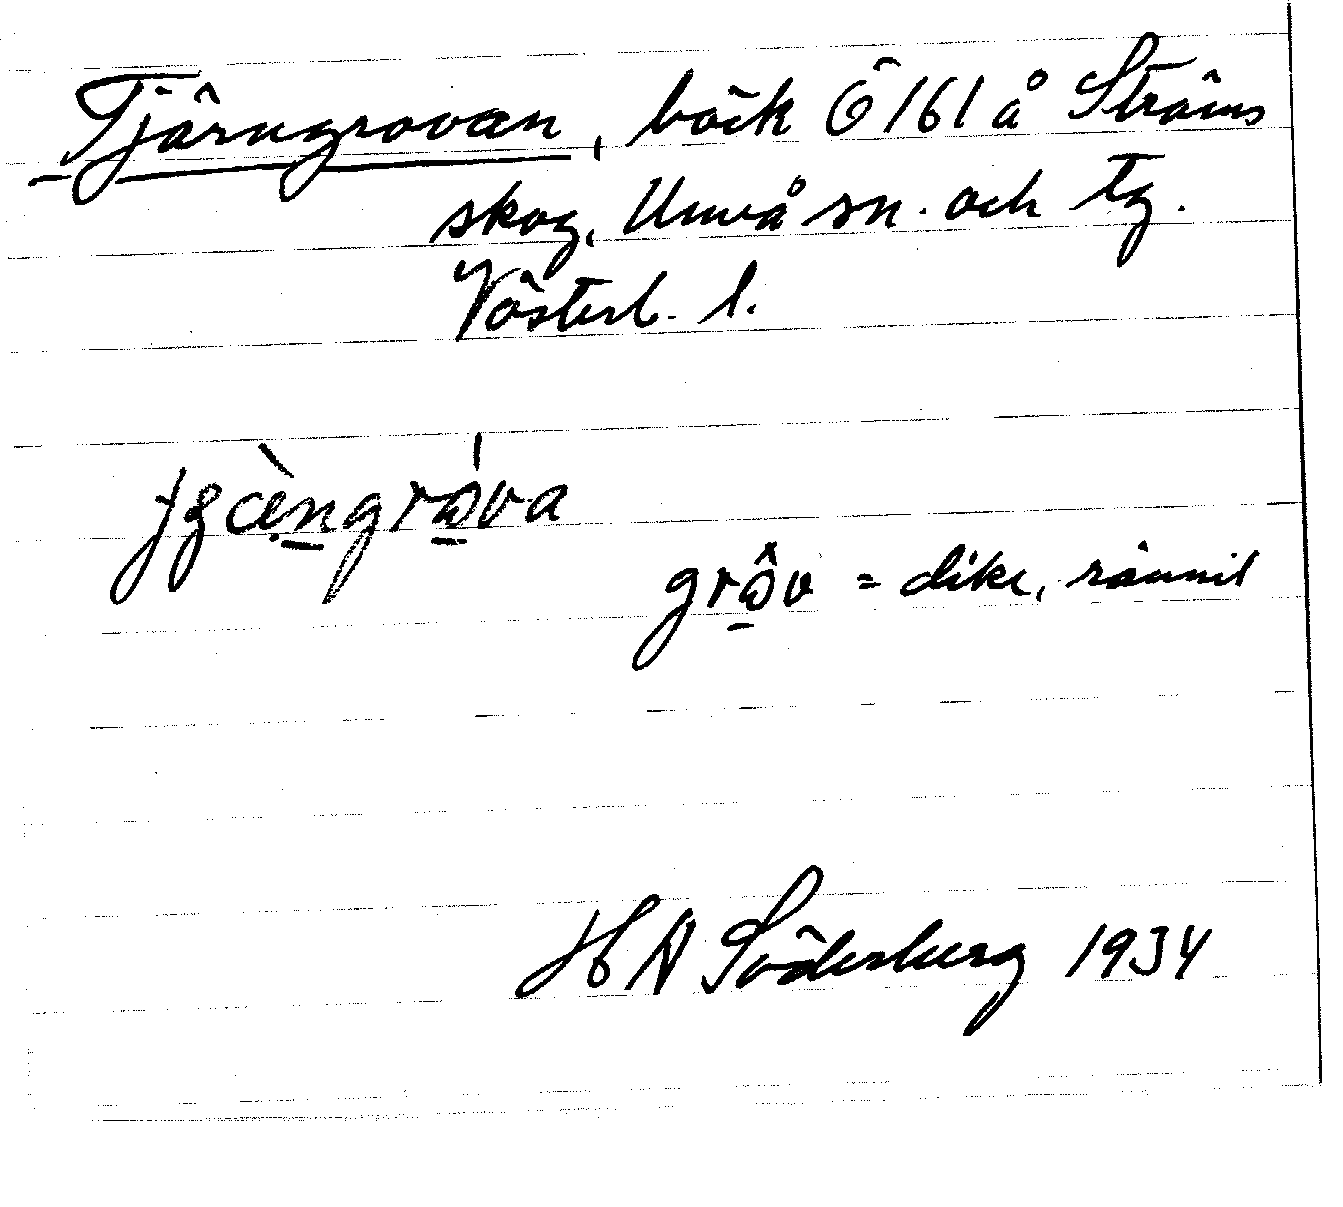 Tjärngrovan, bäck Ö 161 å Ströms
skog, Umeå sn. och tg.
Västerb. l.
grôv = dike, rännil
H A Söderberg 1934